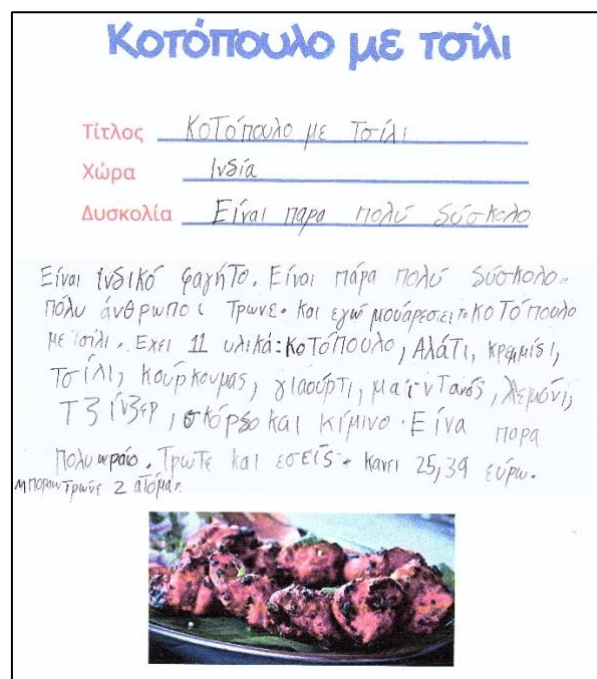 Κοτόπουλο με τσίλι
Τίτλος Κοτόπουλο με τσίλι
Χώρα Ινδία
Δυσκολία Είναι παρα πολύ δύσκολο
Είναι Ινδικό φαγήτο. Είναι πάρα πολύ δύσκολο.
πόλυ άνθρωποι τρωνε. και εγώ μουάρεσει το κοτόπουλο
με τσίλι. Εχει 11 υλικά: κοτόπουλο, Αλάτι, κρεμμίδι,
Τσίλι, κούρκουμας, γιαούρτι, μαϊντανός, λεμόνι,
τζίνζερ, σκόρδο και κίμινο. Είνα παρα
πολυ ωραίο. Τρωτε και εσείς. κανει 25,39 εύρω.
μπορουν τρωνε 2 ατομα.